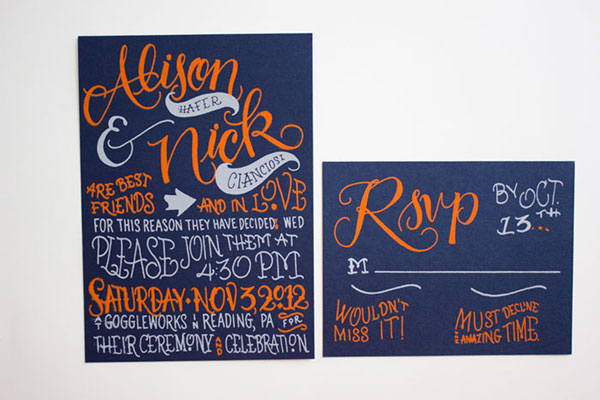 Alison
HAFER
& Nick
CIANCIOSI
ARE BEST
FRIENDS AND IN LOVE
FOR THIS REASON THEY HAVE DECIDED 2 WED
PLEASE JOIN THEM AT
4:30 PM
SATURDAY • NOV 3 2012
AT GOGGLEWORKS IN READING, PA FOR
THEIR CEREMONY AND CELEBRATION
Rsvp
BY OCT.
13TH...
M
WOULDN'T
MISS IT!
MUST DECLINE
AMAZING TIME.